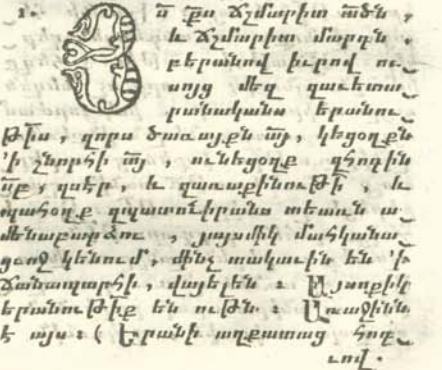 1. Յս՟ ք՟ս ճշմարիտ ա՟ծն ,
և ճշմարիտ մարդն ,
բերանով իւրով ու֊
սոյց մեզ զաւետա֊
րանականս երանու֊
թի՟ս , զորս ծառայքն ա՟յ , կեցօղքն
՚ի շնորհի ա՟յ , ունեցօղք զհոգին
ս՟բ , զսէր , և զառաքինութի՟ , և
պահօղք զպատուիրանս տեառն ա֊
մենաբարձու , յայսմիկ մահկանա֊
ցուջ կենում , մինչ տակաւին են ՚ի
ճանապարհի , վայելեն ։ Այսոքիկ
երանութի՟ք են ութն ։ Առաջինն
է այս ։ ( Երանի աղքատաց հոգ֊
ւով .